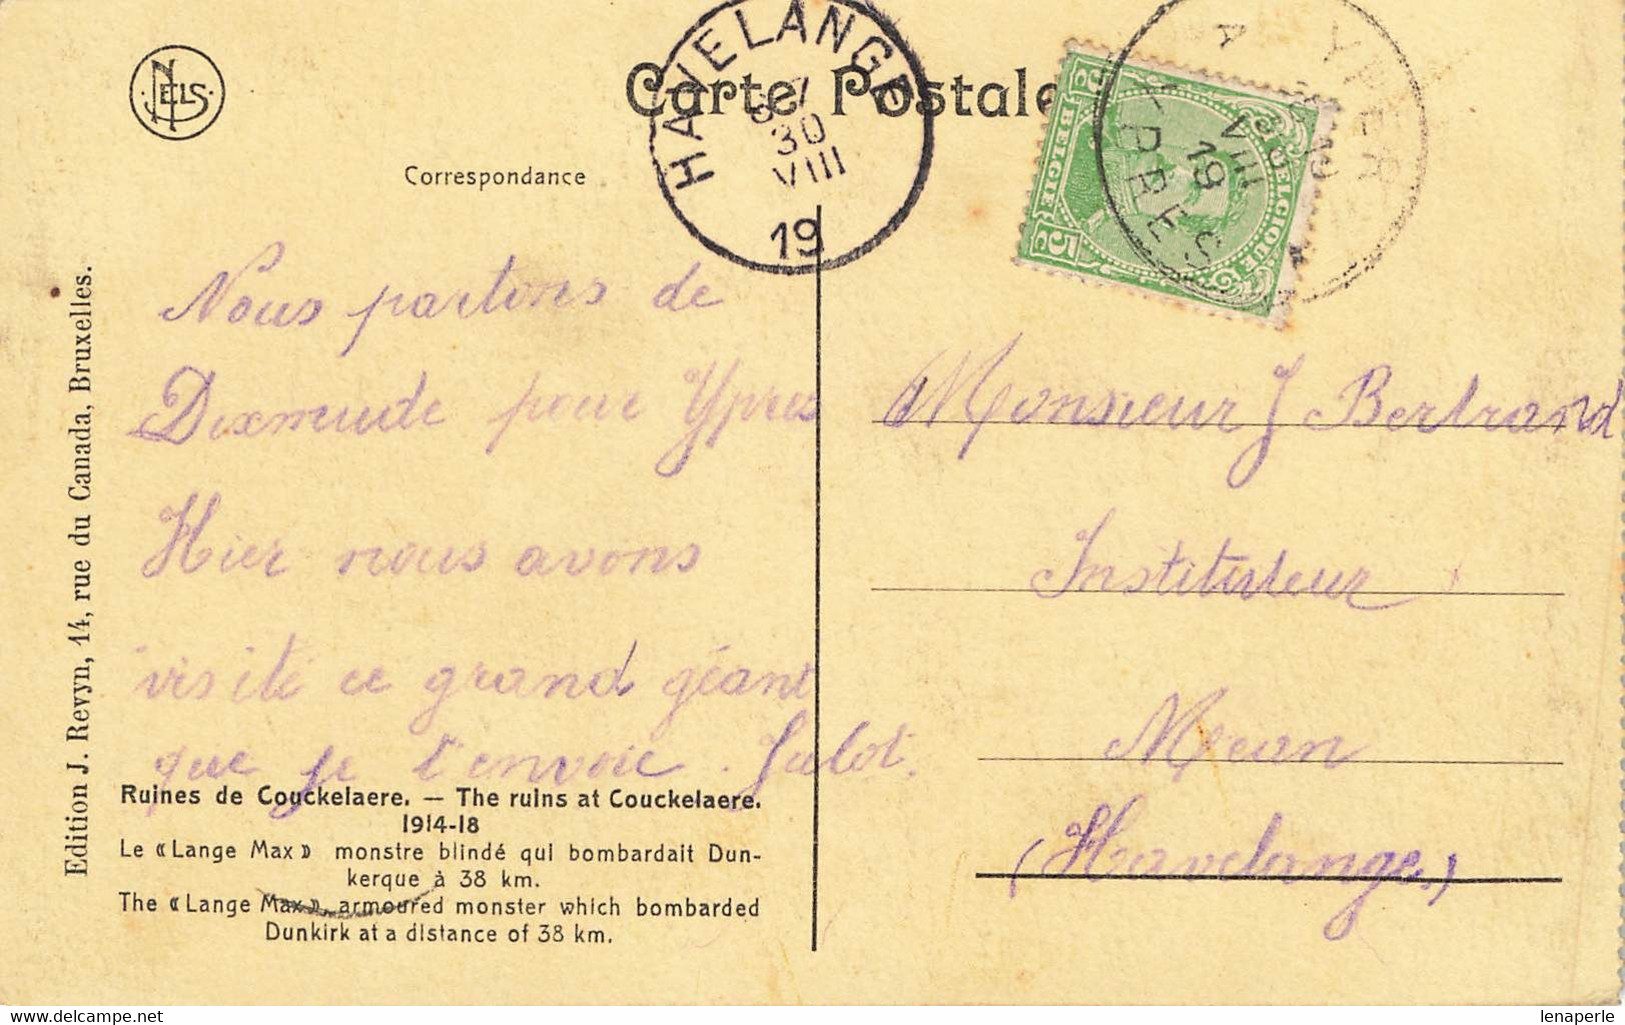 NELS
HAVELANGE
30
VIII
19
Carte Postale
Correspondance
5c BELGIE 5c
BELGIQUE
YPER
VIII
19
YPRES
Nous partons de
Dixmude pour Ypres
Hier nous avons
visité ce grand géant
que je t'envoie. Julot.
Monsieur J Bertrand
Instituteur
Mean
(Havelange.)
Edition J. Revyn, 14, rue du Canada, Bruxelles.
Ruines de Couckelaere. — The ruins at Couckelaere.
1914-18
Le « Lange Max » monstre blindé qui bombardait Dun-
kerque à 38 km.
The « Lange Max », armoured monster which bombarded
Dunkirk at a distance of 38 km.
delcampe.net
lenaperle